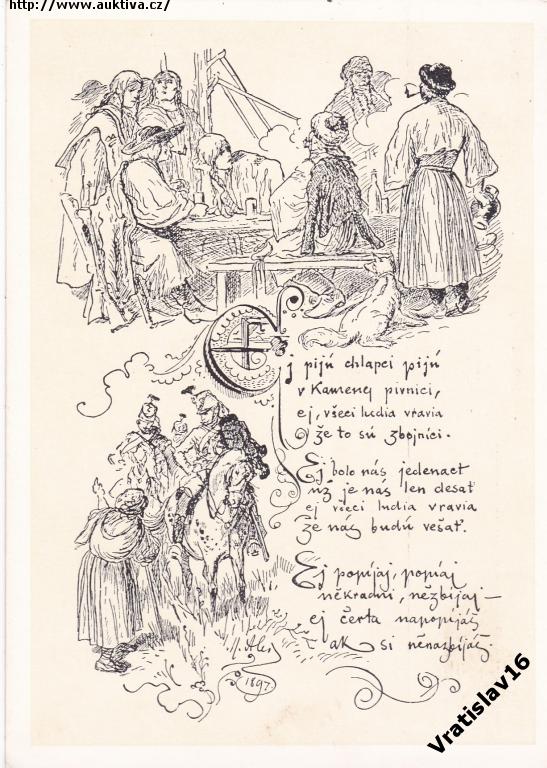 http://www.auktiva.cz/
Ej pijú chlapci pijú
v Kamenej pivnici,
ej, všeci ludia vravia
že to sú zbojníci.
Ej bolo nás jedenact
už je nás len desať
ej všeci ludia vravia
že nás budú vešať.
Ej popíjaj, popíjaj
někradni, nězbíjaj —
ej čerta napopíjáš
ak si něnazbíjáš.
M. Aleš
1897
Vratislav16